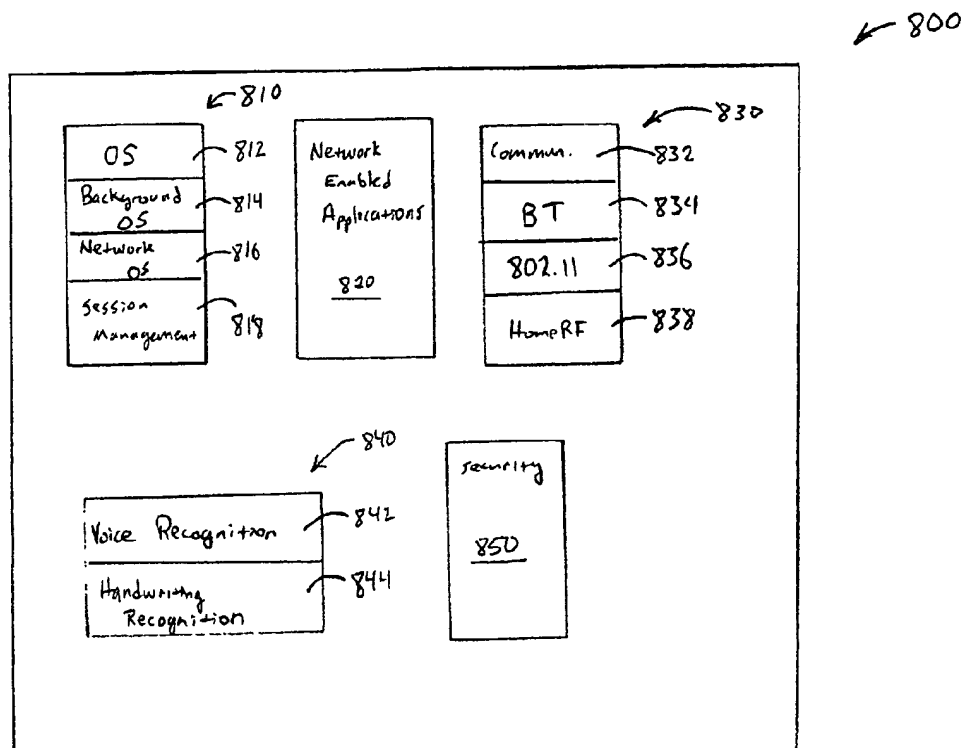 800
810
OS
812
Background
OS
814
Network
OS
816
Session
Management
818
Network
Enabled
Applications
820
830
Commun.
832
BT
834
802.11
836
HomeRF
838
840
Voice Recognition
842
Handwriting
Recognition
844
Security
850